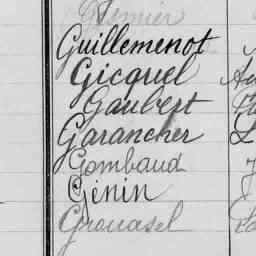 Guillemenot
Gicquel
Gaubert
Garancher
Gombaud
Génin
Grouasel